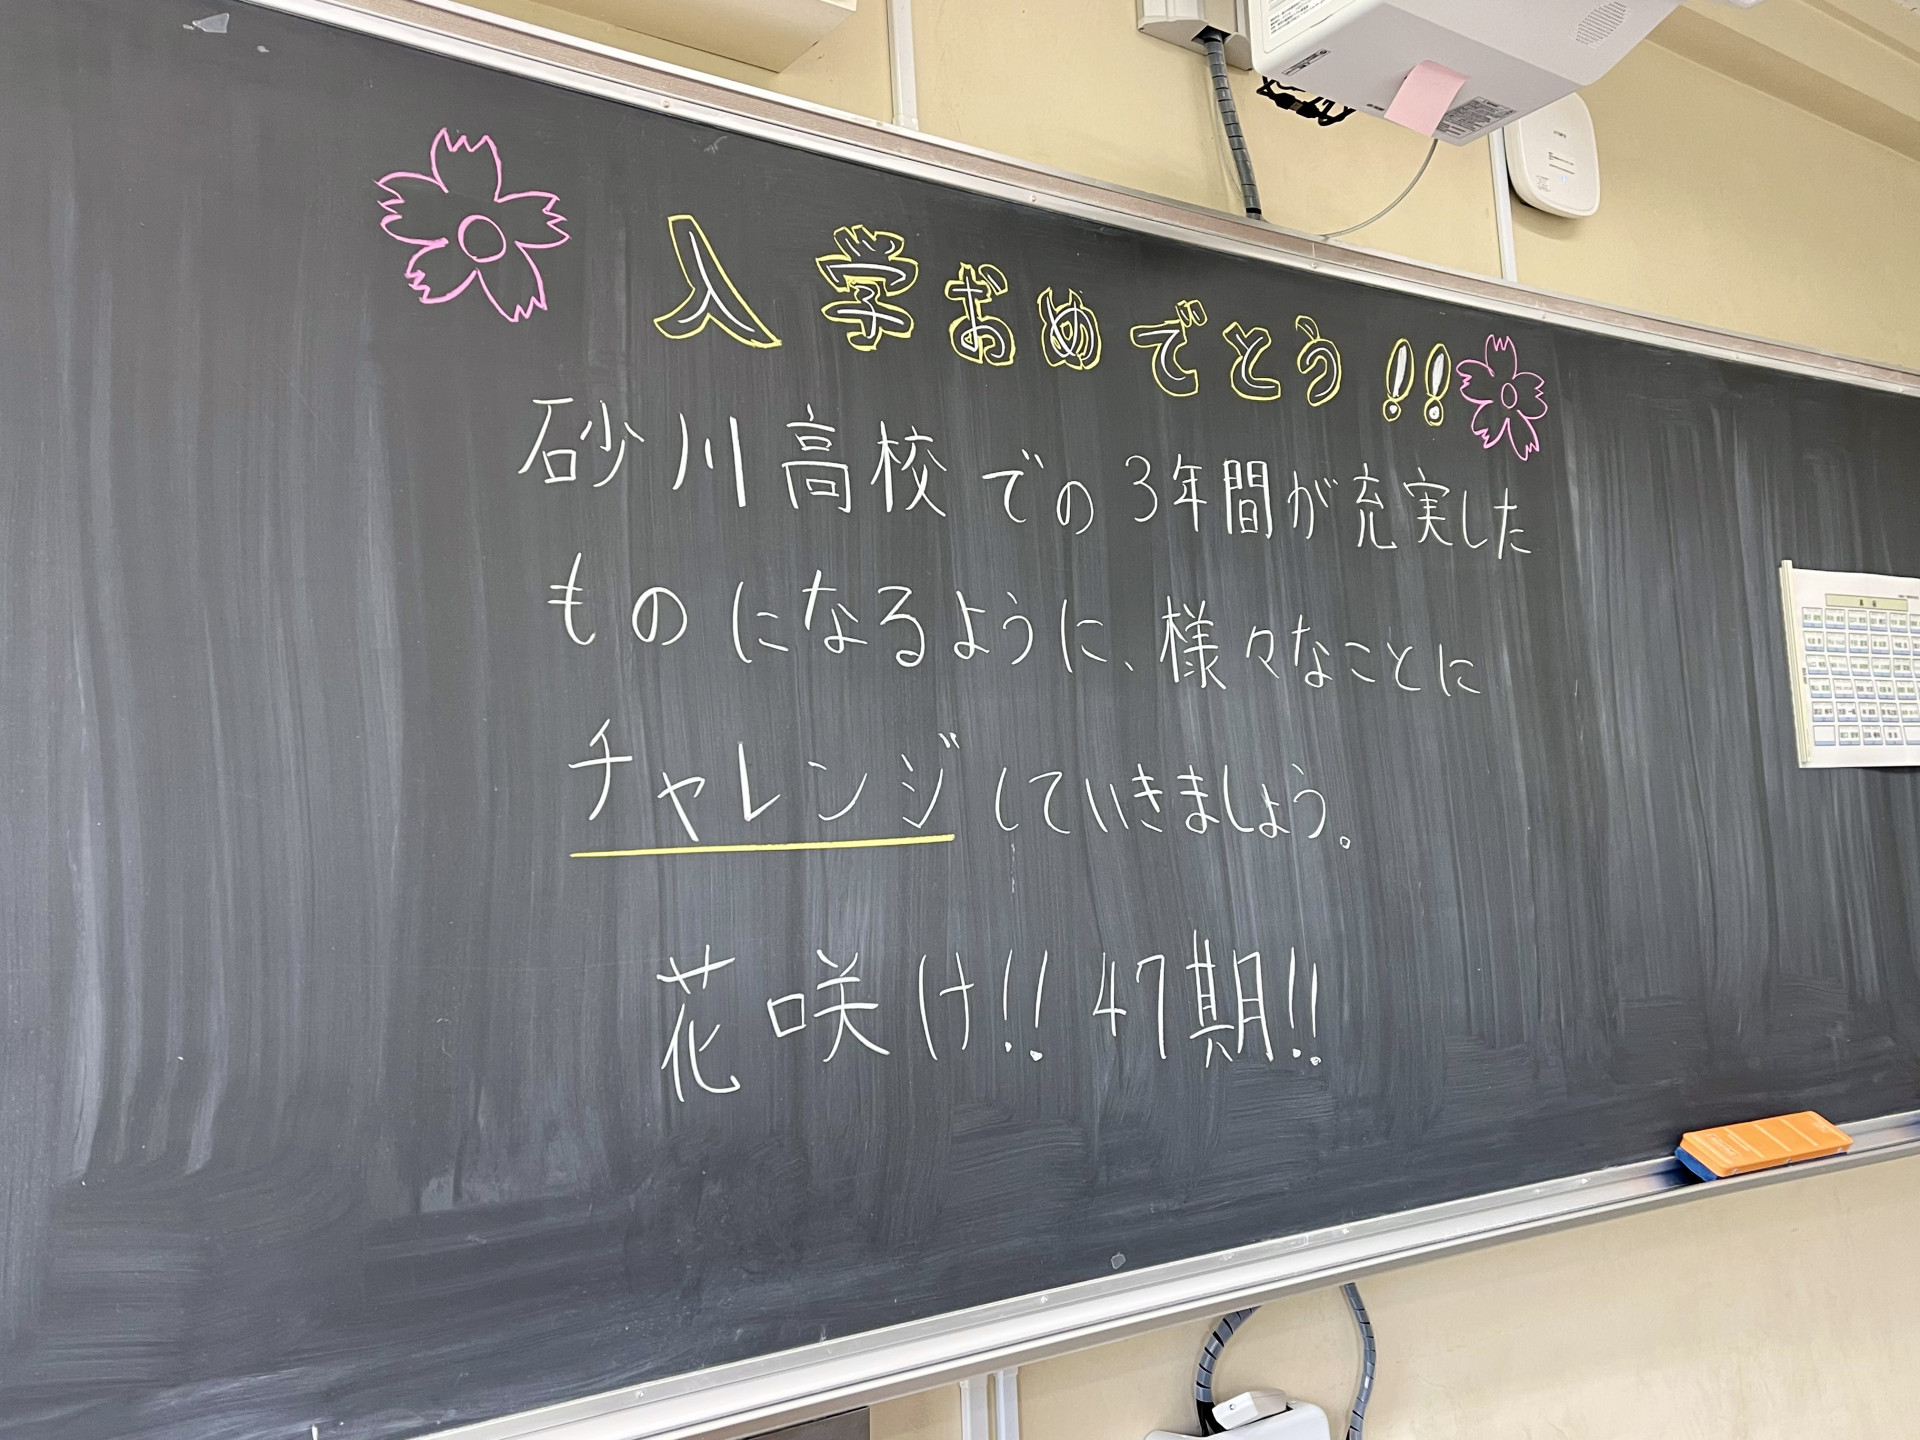 入学おめでとう!!
砂川高校での3年間が充実した
ものになるように、様々なことに
チャレンジしていきましょう。
花咲け!! 47期!!